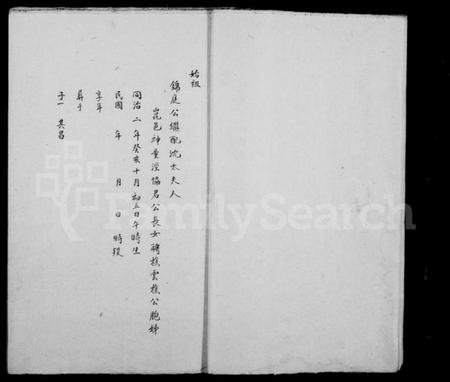 始祖
錦庭公繼配沈太夫人
崑邑神童涇協君公長女聘樵雲樵公胞姊
同治二年癸亥十月初五日午時生
民國 年 月 日 時歿
享年
葬于
子一 其昌
FamilySearch